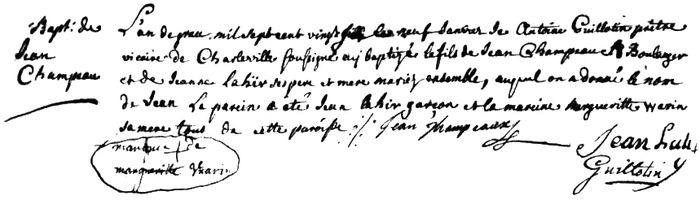 Bapt: de
Jean
Champeau
L'an de grace mil sept cent vingt le neuf Janvier Je Antoine Guillotin prêtre
vicaire de Charleville soussigné ay baptizé le fils de Jean Champeau Boulenger
et de Jeanne Lahir ses pere et mere mariez ensemble, auquel on a donné le nom
de Jean Le parein a été Jean Lahir garçon et la mareine Margueritte Warin
sa mere tous de cette paroisse Jean Champeaux
marque de
margueritte Warin
Jean
Guillotin